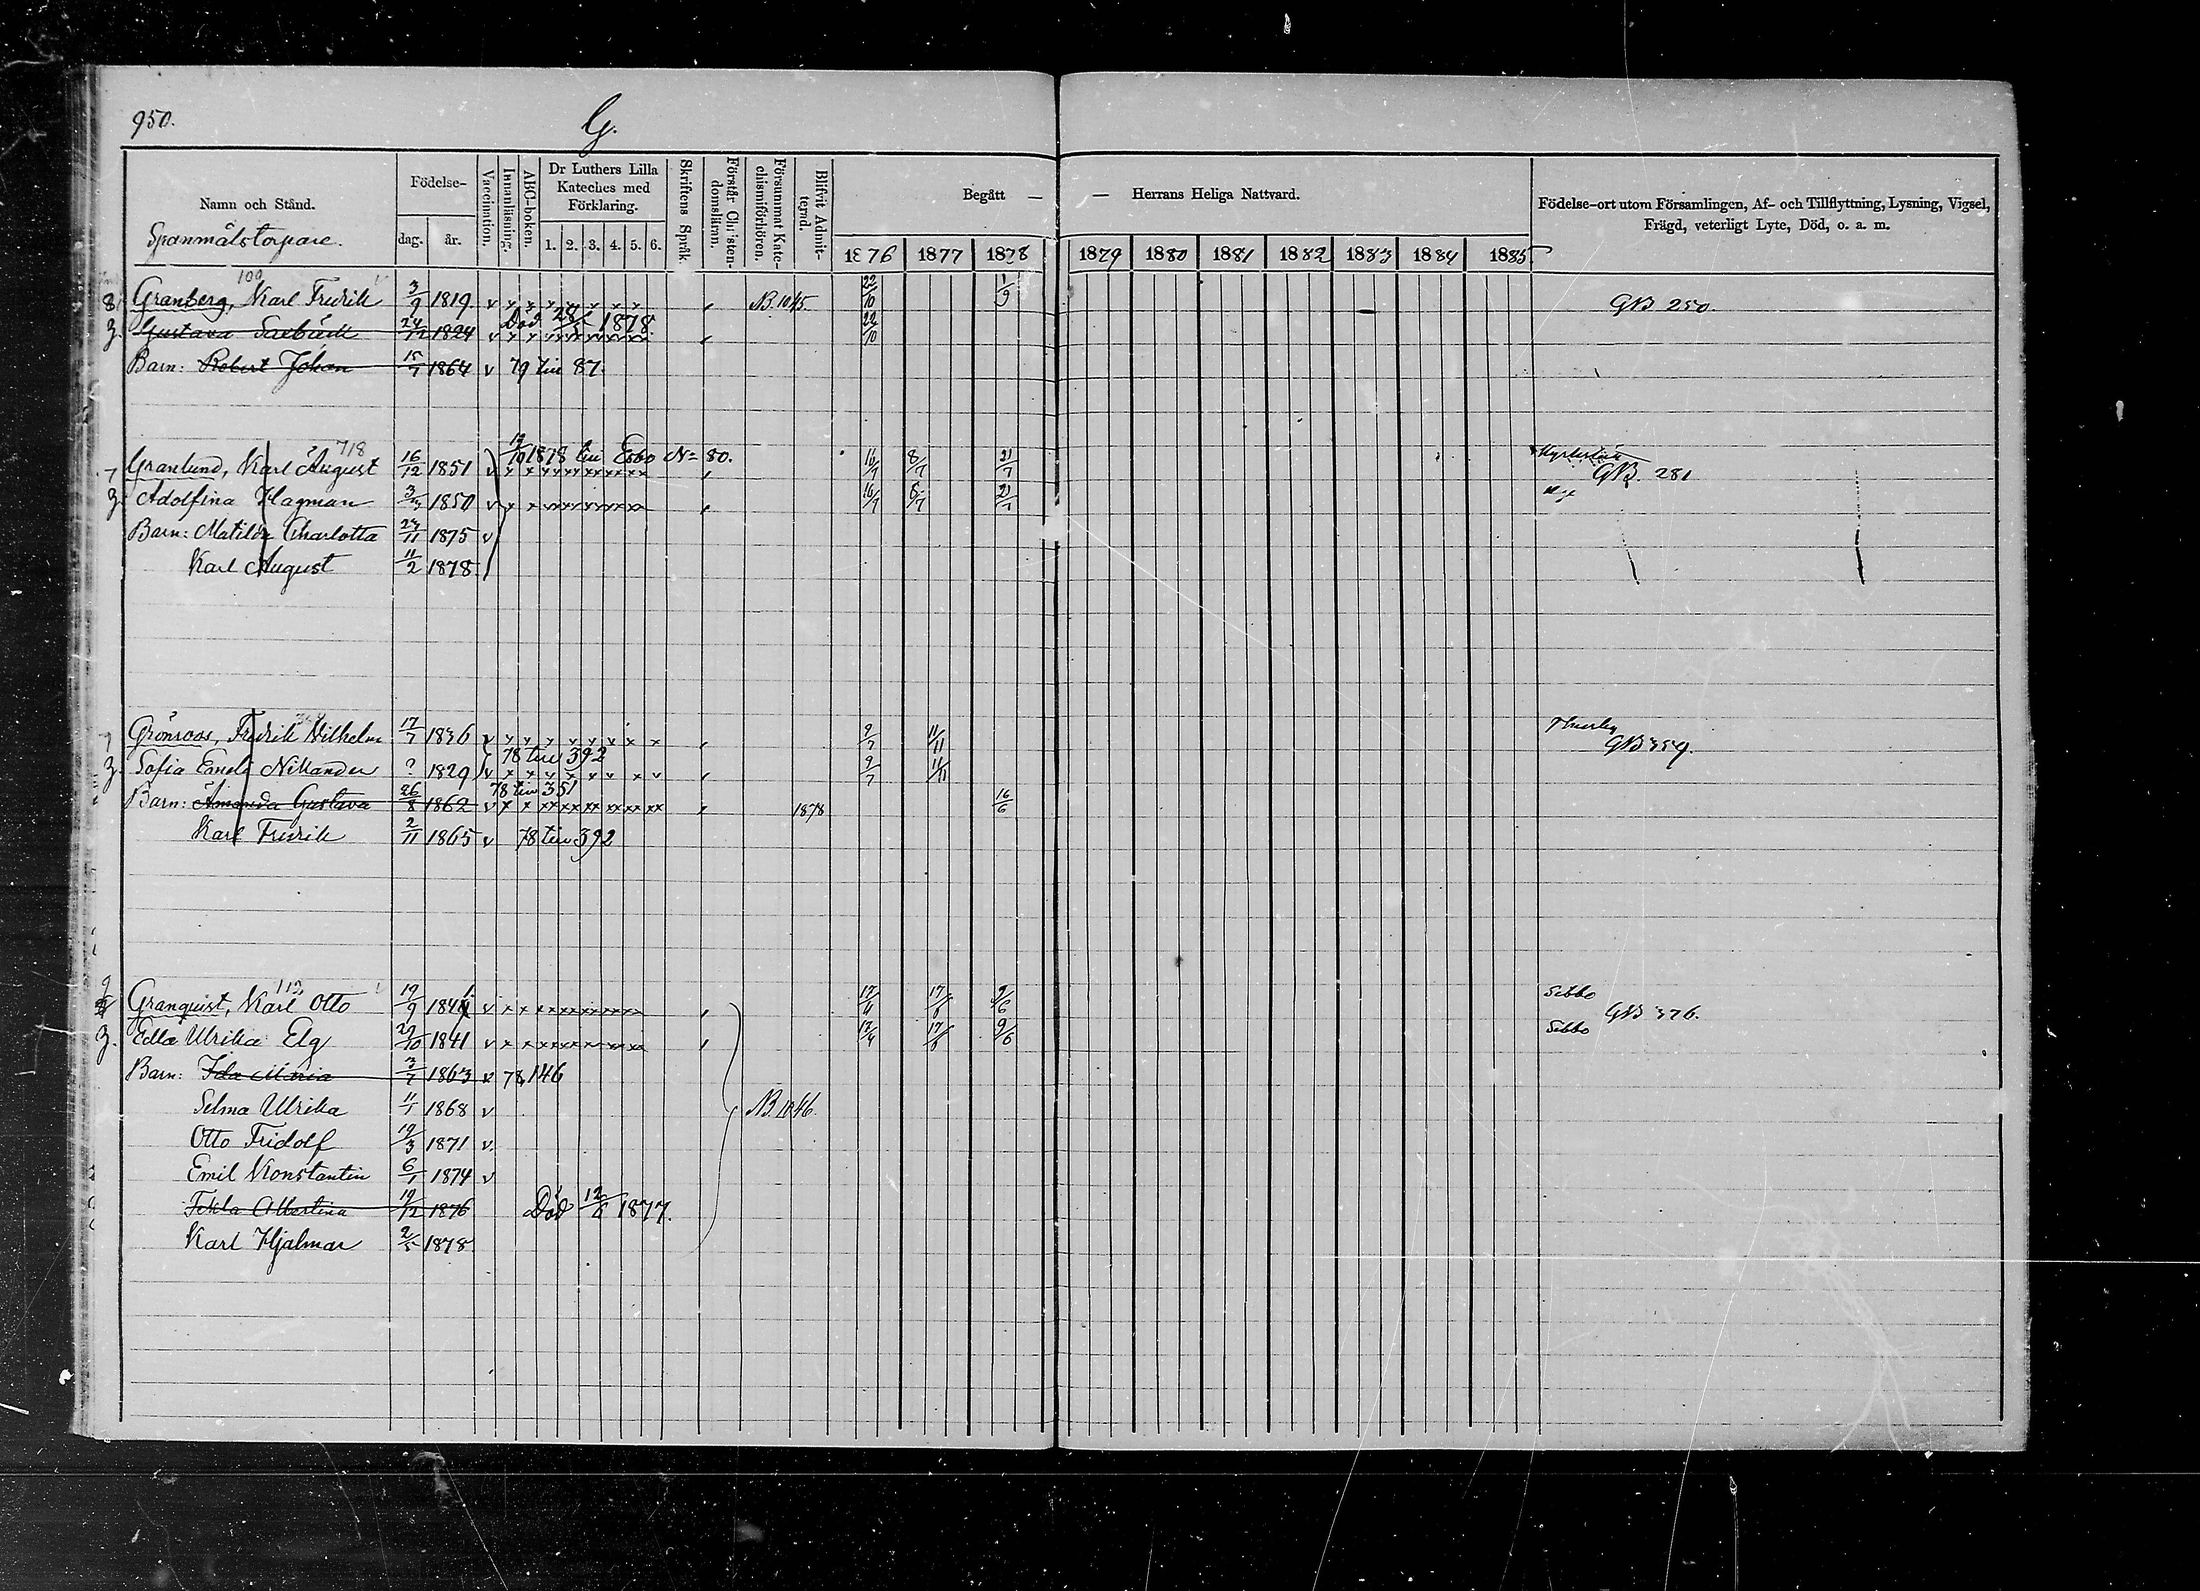 950.
G.
Namn och Stånd.
Spanmålstorpare.
Födelse-
dag.
år.
Vaccination.
Innanläsning.
ABC-boken.
Dr Luthers Lilla
Kateches med
Förklaring.
1. 2. 3. 4. 5. 6.
Skriftens Språk.
Förstår Christen-
domsläran.
Försummat Kate-
chismiförhören.
Blifvit Admit-
terad.
Begått —
— Herrans Heliga Nattvard.
1876 1877 1878 1879 1880 1881 1882 1883 1884 1885
Födelse-ort utom Församlingen, Af- och Tillflyttning, Lysning, Vigsel,
Frägd, veterligt Lyte, Död, o. a. m.
109
8. Granberg, Karl Fredrik 3/9 1819 v x x x x x x x x NB. 1045. 22/10 1/9 GB 250.
Död 28/5 1878.
3. Gustava 24/12 1824 v 22/10
Barn: Robert Johan 15/7 1864 v 79 till 87.
718
19/10 1878 till Esbo N= 80.
7 Granlund, Karl August 16/12 1851 v 16/7 8/7 21/7 GB. 281
3. Adolfina Hagman 1850 v 16/7 8/7 21/7
Barn: Matilda Charlotta 24/11 1875 v
Karl August 11/2 1878
7 Grönroos, Fredrik Vilhelm 17/7 1836 v x x x x x x x x 9/7 11/11 Thusby
GB 359.
78 till 392
3. Sofia Nikander ? 1829 v 9/7 11/11
78 till 351
Barn: Amanda Gustava 26/8 1862 v 1878 16/6
Karl Fredrik 2/11 1865 v 78 till 392
112
9 Granquist, Karl Otto 19/9 1844 v 17/4 17/6 9/6 Sibbo
GB 376.
3. Edla Ulrika Elg 29/10 1841 v 17/4 17/6 9/6 Sibbo
Barn: Ida Maria 3/7 1863 v 78, 146
Selma Ulrika 11/1 1868 v NB. 1046.
Otto Fridolf 19/3 1871 v.
Emil Konstantin 6/1 1874 v
Tekla Albertina 19/12 1876 Död 12/6 1877.
Karl Hjalmar 2/5 1878